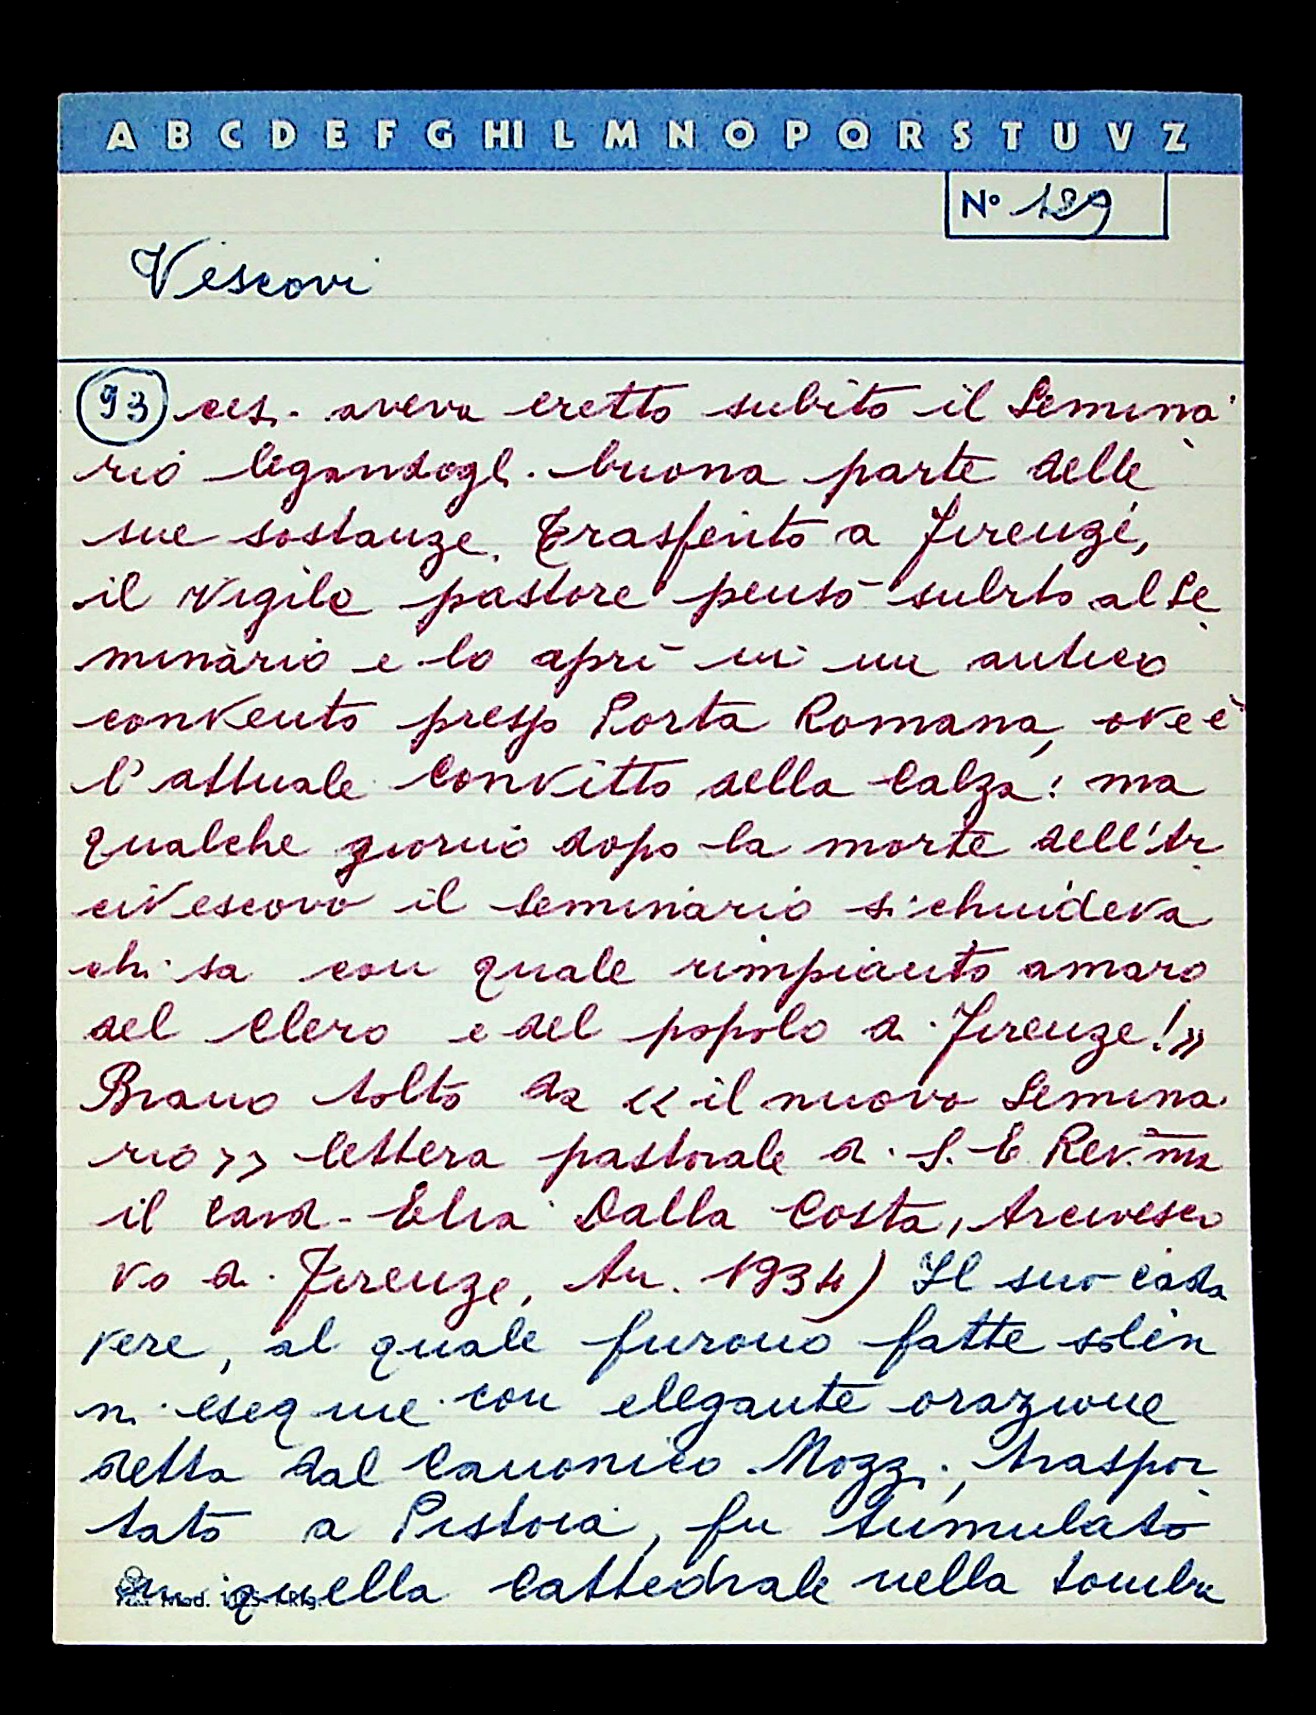 A B C D E F G HI L M N O P Q R S T U V Z
N° 189
Vescovi
93 ces. aveva eretto subito il Semina
rio legandogli buona parte delle
sue sostanze. Trasferito a Firenze,
il vigile pastore pensò subito al Se
minario e lo aprì in un antico
convento presso Porta Romana, ove è
l'attuale Convitto della Calza: ma
qualche giorno dopo la morte dell'Ar
civescovo il Seminario si chiudeva
chi sa con quale rimpianto amaro
del Clero e del popolo di Firenze!»
Brano tolto da «il nuovo Semina
rio» lettera pastorale di S. E Rev.ma
il Card. Elia Dalla Costa, Arcivesco
vo di Firenze, An. 1934) Il suo cada
vere, al quale furono fatte solen
ni esequie con elegante orazione
detta dal Canonico Mozzi, traspor
tato a Pistoia, fu tumulato
in quella Cattedrale nella tomba
Mod.